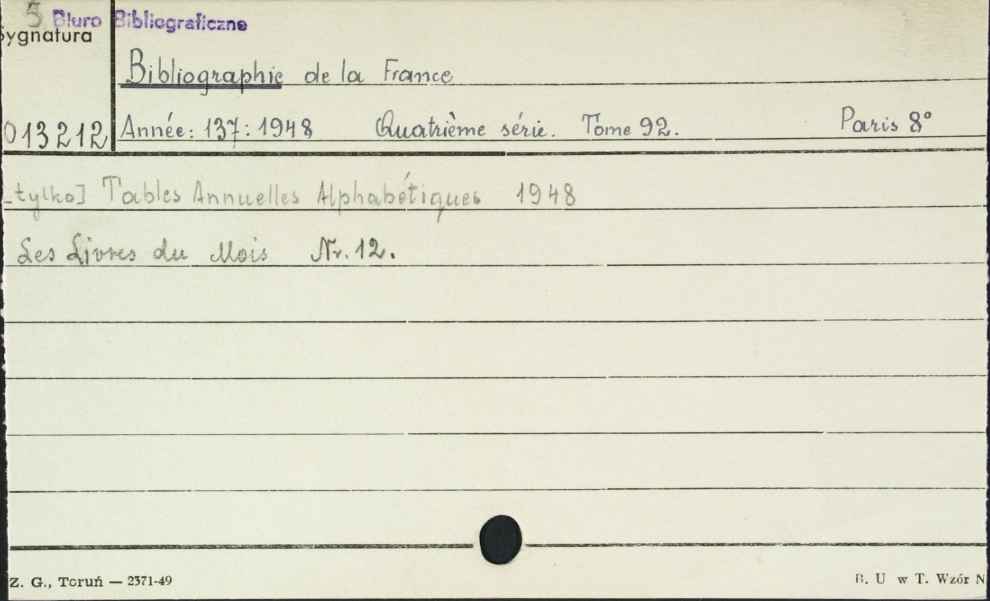 5 Biuro Bibliograficzne
Sygnatura
Bibliographie de la France
013212 Année: 137: 1948 Quatrième série. Tome 92. Paris 8°
[tylko] Tables Annuelles Alphabétiques 1948
Les Livres du Mois Nr. 12.
Z. G., Toruń — 2371-49
B. U w T. Wzór N